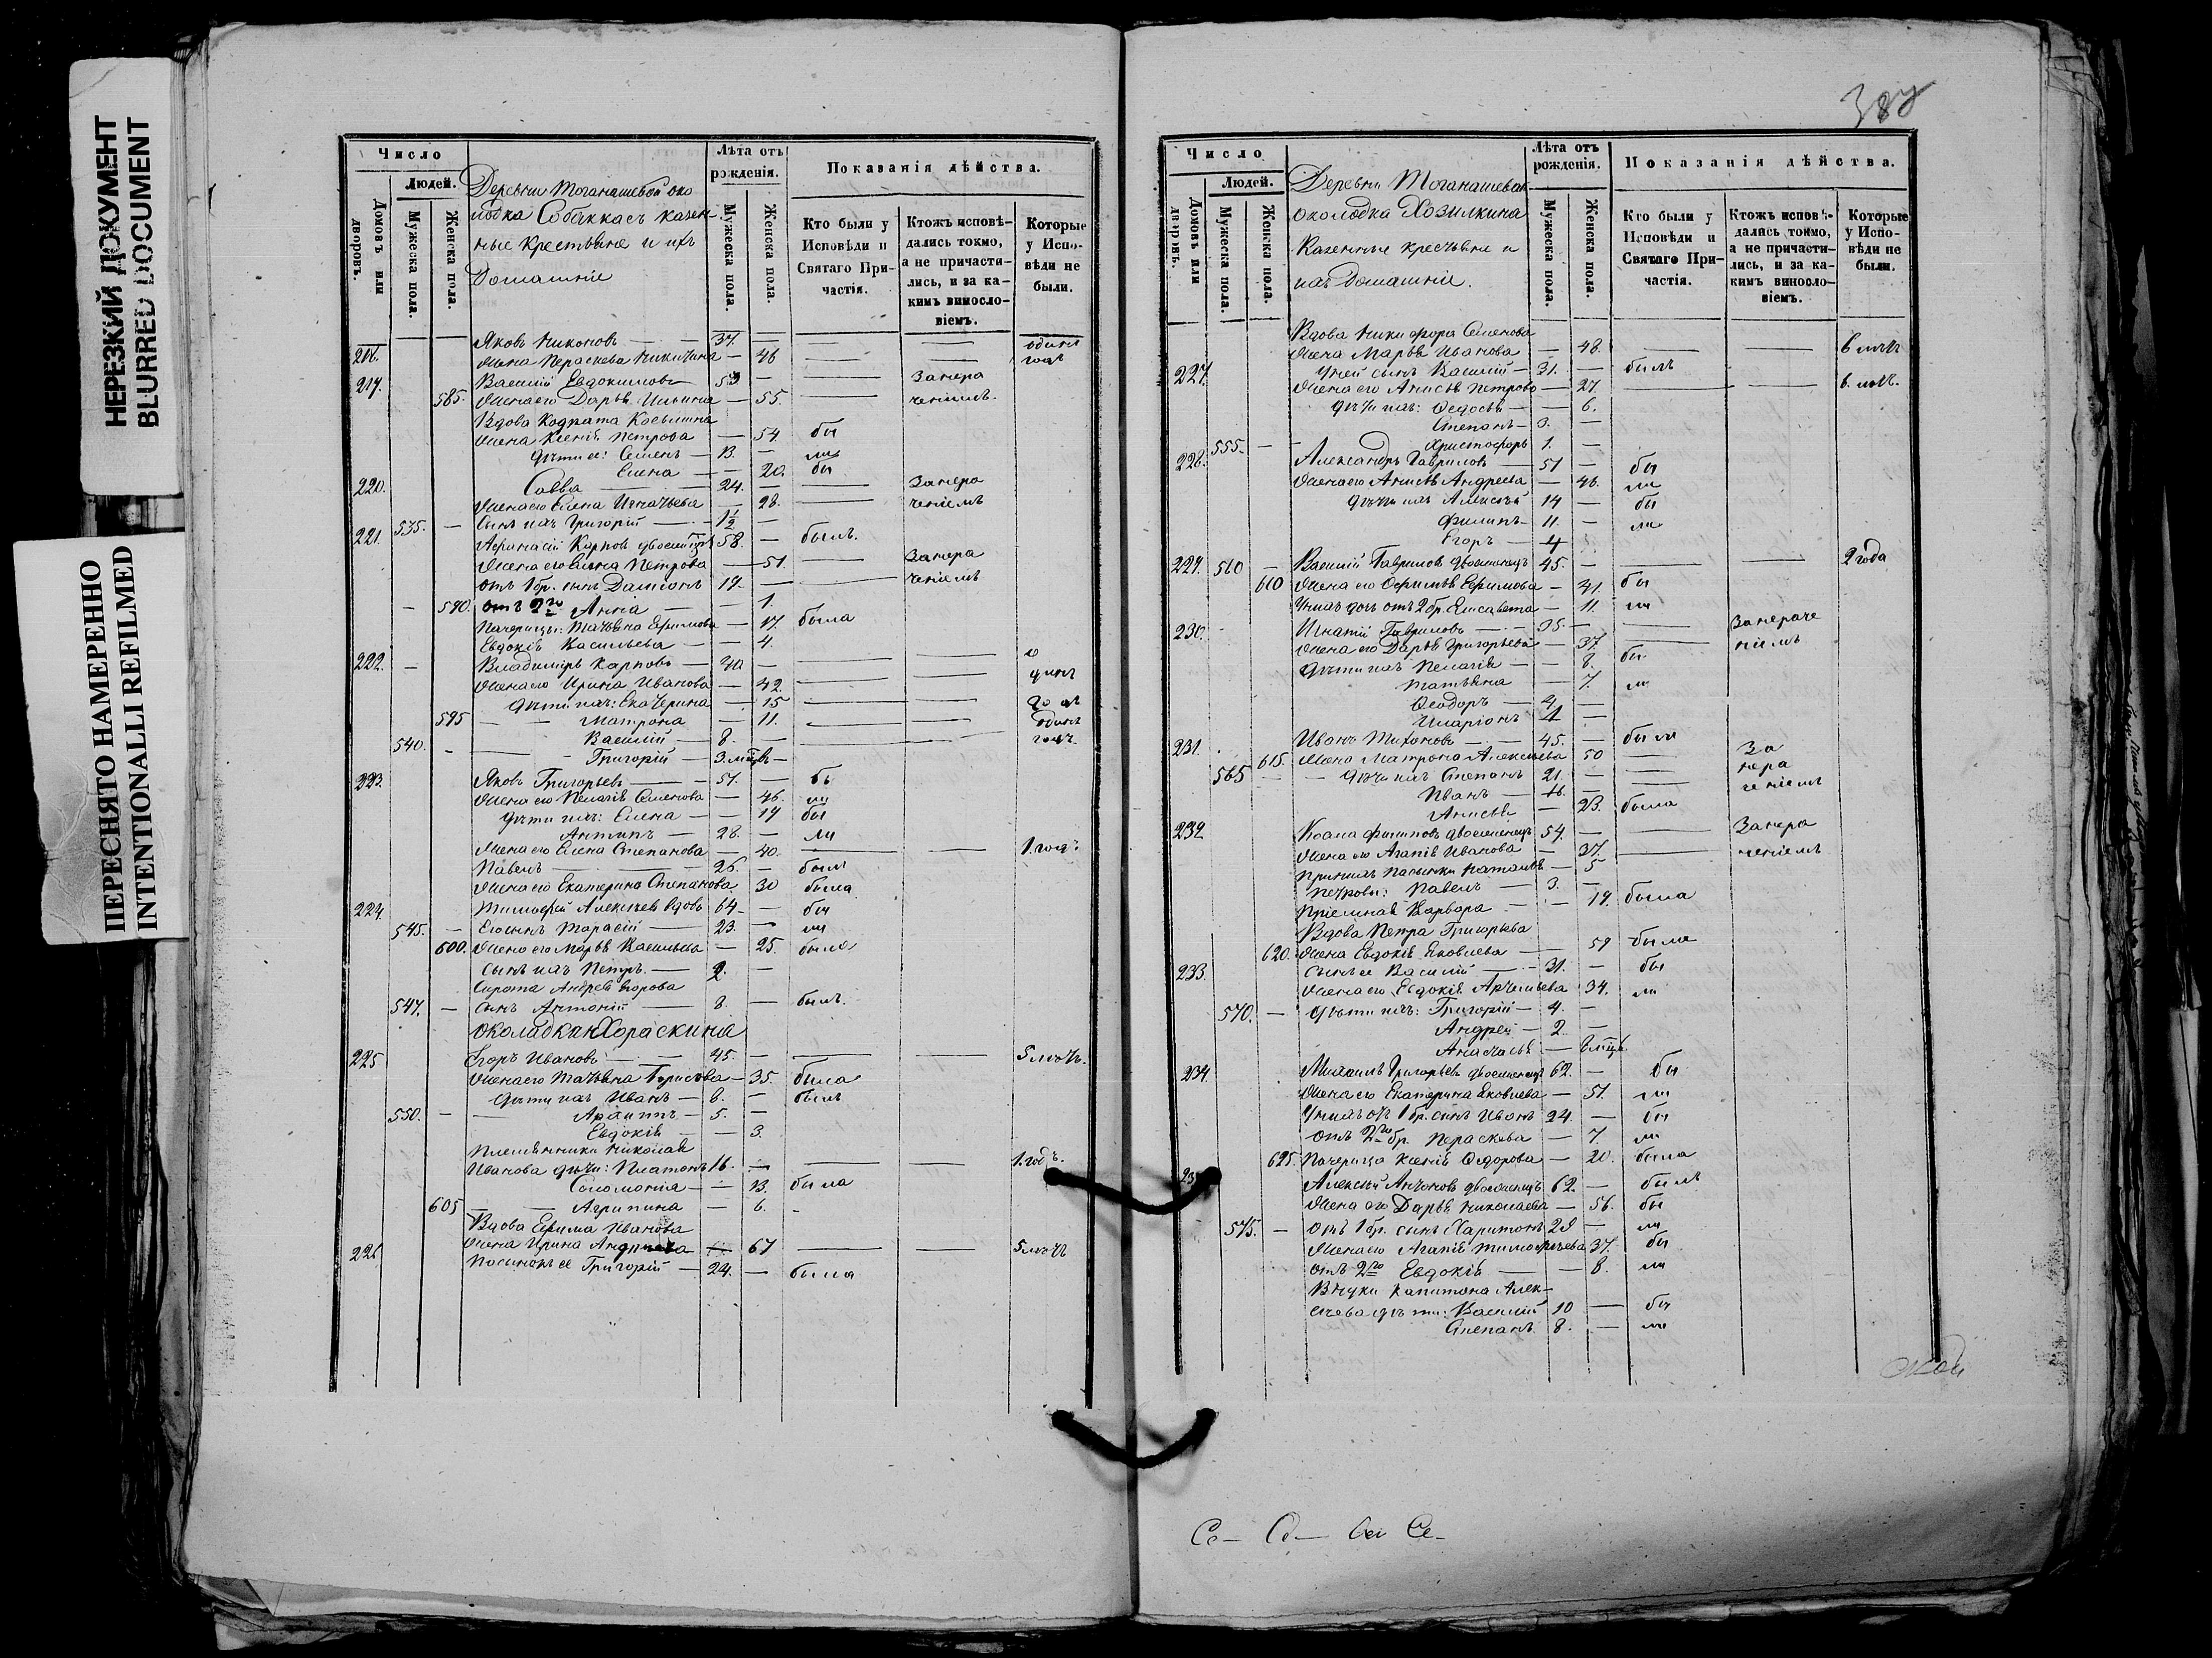 НЕРЕЗКИЙ ДОКУМЕНТ
BLURRED DOCUMENT
ПЕРЕСНЯТО НАМЕРЕННО
INTENTIONALLI REFILMED
Число
Людей.
Домовъ или дворовъ.
Мужеска пола.
Женска пола.
Деревни Тоганашевой око
лодка Собаккасъ казен-
ные крестьяне и ихъ
домашніе
Лѣта отъ рожденія.
Мужеска пола.
Женска пола.
Показанія дѣйства.
Кто были у Исповѣди и Святаго Причастія.
Ктожъ исповѣдались токмо, а не причастились, и за какимъ винословіемъ.
Которые у Исповѣди не были.
Яковъ Никоновъ — 37. — одинъ
218. Жена Параскева Никитина — 46 — годъ
219. Василій Евдокимовъ 59 — Занера
585. Жена его Дарья Ильина — 55. — ченіемъ.
Вдова Кодрата Косьмина
жена Ксенія Петрова — 54 бы
дѣти ее: Семенъ — 13. — ли
Елена — 20. бы
220. Савва 24. — Занера
Жена его Елена Игнатьева — 28. — ченіемъ
535. — Сынъ ихъ Григорій — 1½ —
221. Афанасій Карповъ двоеженецъ 58. — былъ.
Жена его Елена Петрова — 51. — Занера
отъ 1 бр. сынъ Даміанъ 19. — ченіемъ
— 590. отъ 2го Анна — 1.
Падчерицы: Татьяна Ефимова — 17 была
Евдокія Васильева — 4.
222. — Владиміръ Карповъ — 40 — о
Жена его Ирина Иванова — 42. — динъ
дѣти ихъ: Екатерина — 15 — годъ
595 — Матрона — 11. — одинъ
Василій — 8. — годъ.
540. — Григорій — 3. мцъ —
223. Яковъ Григорьевъ — 51. — бы
Жена его Пелагія Семенова — 46. ли
дѣти ихъ: Елена — 19 бы
Антипъ — 28. — ли
Жена его Елена Степанова — 40. — 1. годъ
Павелъ — 26. — былъ
Жена его Екатерина Степанова 30 была
224. Тимофей Алексѣевъ вдовъ 64 — бы
545. — Его сынъ Тарасій — 23. — ли
600. Жена его Марья Васильева — 25. была
Сынъ ихъ Петръ. — 2. —
Сирота Андрея Егорова
547. — сынъ Антоній — 8. — былъ.
околодкин Хораскина
225 Егоръ Ивановъ — 45. — 5 лѣтъ.
Жена его Татьяна Борисова — 35. была
дѣти ихъ Иванъ — 8. — былъ
550. — Архиппъ — 5. —
Евдокія — 3.
Племянники Николая
Иванова дѣти: Платонъ 16. — 1. годъ.
Соломонія — 13. была
605 — Агрипина — 6. -
Вдова Ефима Иванова
226. Жена Ирина Андреева — 67 — 5 лѣтъ
Посынокъ ее Григорій — 24. — была
387
Число
Людей.
Домовъ или дворовъ.
Мужеска пола.
Женска пола.
Деревни Тоганашевой
околодка Хозилкина
Казенные крестьяне и
ихъ домашніе.
Лѣта отъ рожденія.
Мужеска пола.
Женска пола.
Показанія дѣйства.
Кто были у Исповѣди и Святаго Причастія.
Ктожъ исповѣдались токмо, а не причастились, и за какимъ винословіемъ.
Которые у Исповѣди не были.
Вдова Никифора Семенова
жена Марья Иванова — 48. — 6 лѣтъ
227. У ней сынъ Василій — 31. — былъ
Жена его Анисья Петрова — 27 — 6. лѣтъ.
дѣти ихъ: Федосья — 6.
Степанъ — 3. —
555. — Христофоръ 1. —
228. Александръ Гавриловъ — 51 — бы
Жена его Анисья Андреева — 46. ли
дѣти ихъ Алексѣй 14 — бы
Филипъ — 11. — ли
Егоръ — 4
229. 560 — Василій Гавриловъ двоеженецъ 45. — 2 года
610 Жена его Ефимія Ефимова — 41. бы
У нихъ дочь отъ 2 бр. Елисавета — 11. ли
230. Игнатій Гавриловъ — 35 — Занераче
Жена его Дарья Григорьева — 37. — ніемъ
дѣти ихъ Пелагія — 8. бы
Татьяна — 7. ли
Феодоръ — 4. —
Иларіонъ 1 —
231. Иванъ Тихоновъ — 45. — были
615. Жена Матрона Алексѣева 50 — За
565 — дѣти ихъ Степанъ 21. — нера
Иванъ — 16. — ченіемъ
Анисья — 23. была
232 Іоана Филиповъ двоеженецъ 54. — Занера
Жена его Агапія Иванова — 37. — ченіемъ
При нихъ Пасынки Наталья — 5
Петровы: Павелъ — 3. —
Пріемная Варвара — 19. была
Вдова Петра Григорьева
620. Жена Евдокія Яковлева — 59 была
233. Сынъ ее Василій — 31. — бы
Жена его Евдокія Артемьева 34. ли
570. — дѣти ихъ: Григорій — 4. —
Андрей — 2. —
Анастасія — 8 мцъ
234. Михаилъ Григорьевъ двоеженецъ 62. — бы
Жена его Екатерина Яковлева — 51. ли
У нихъ отъ 1 бр. сынъ Иванъ 24. — бы
отъ 2го бр. Параскева — 7. ли
625. Падчерица Ксенія Федорова — 20. была
23 Алексѣй Антоновъ двоеженецъ 62. — былъ
Жена его Дарья Николаева — 56. бы
575. — отъ 1 бр. сынъ Харитонъ 28 — ли
Жена его Агапія Тимофеева 37. бы
отъ 2го Евдокія — 8. ли
Внуки Капитона Алек-
сѣева дѣти: Василій 10 — бы
Степанъ 8. — ли